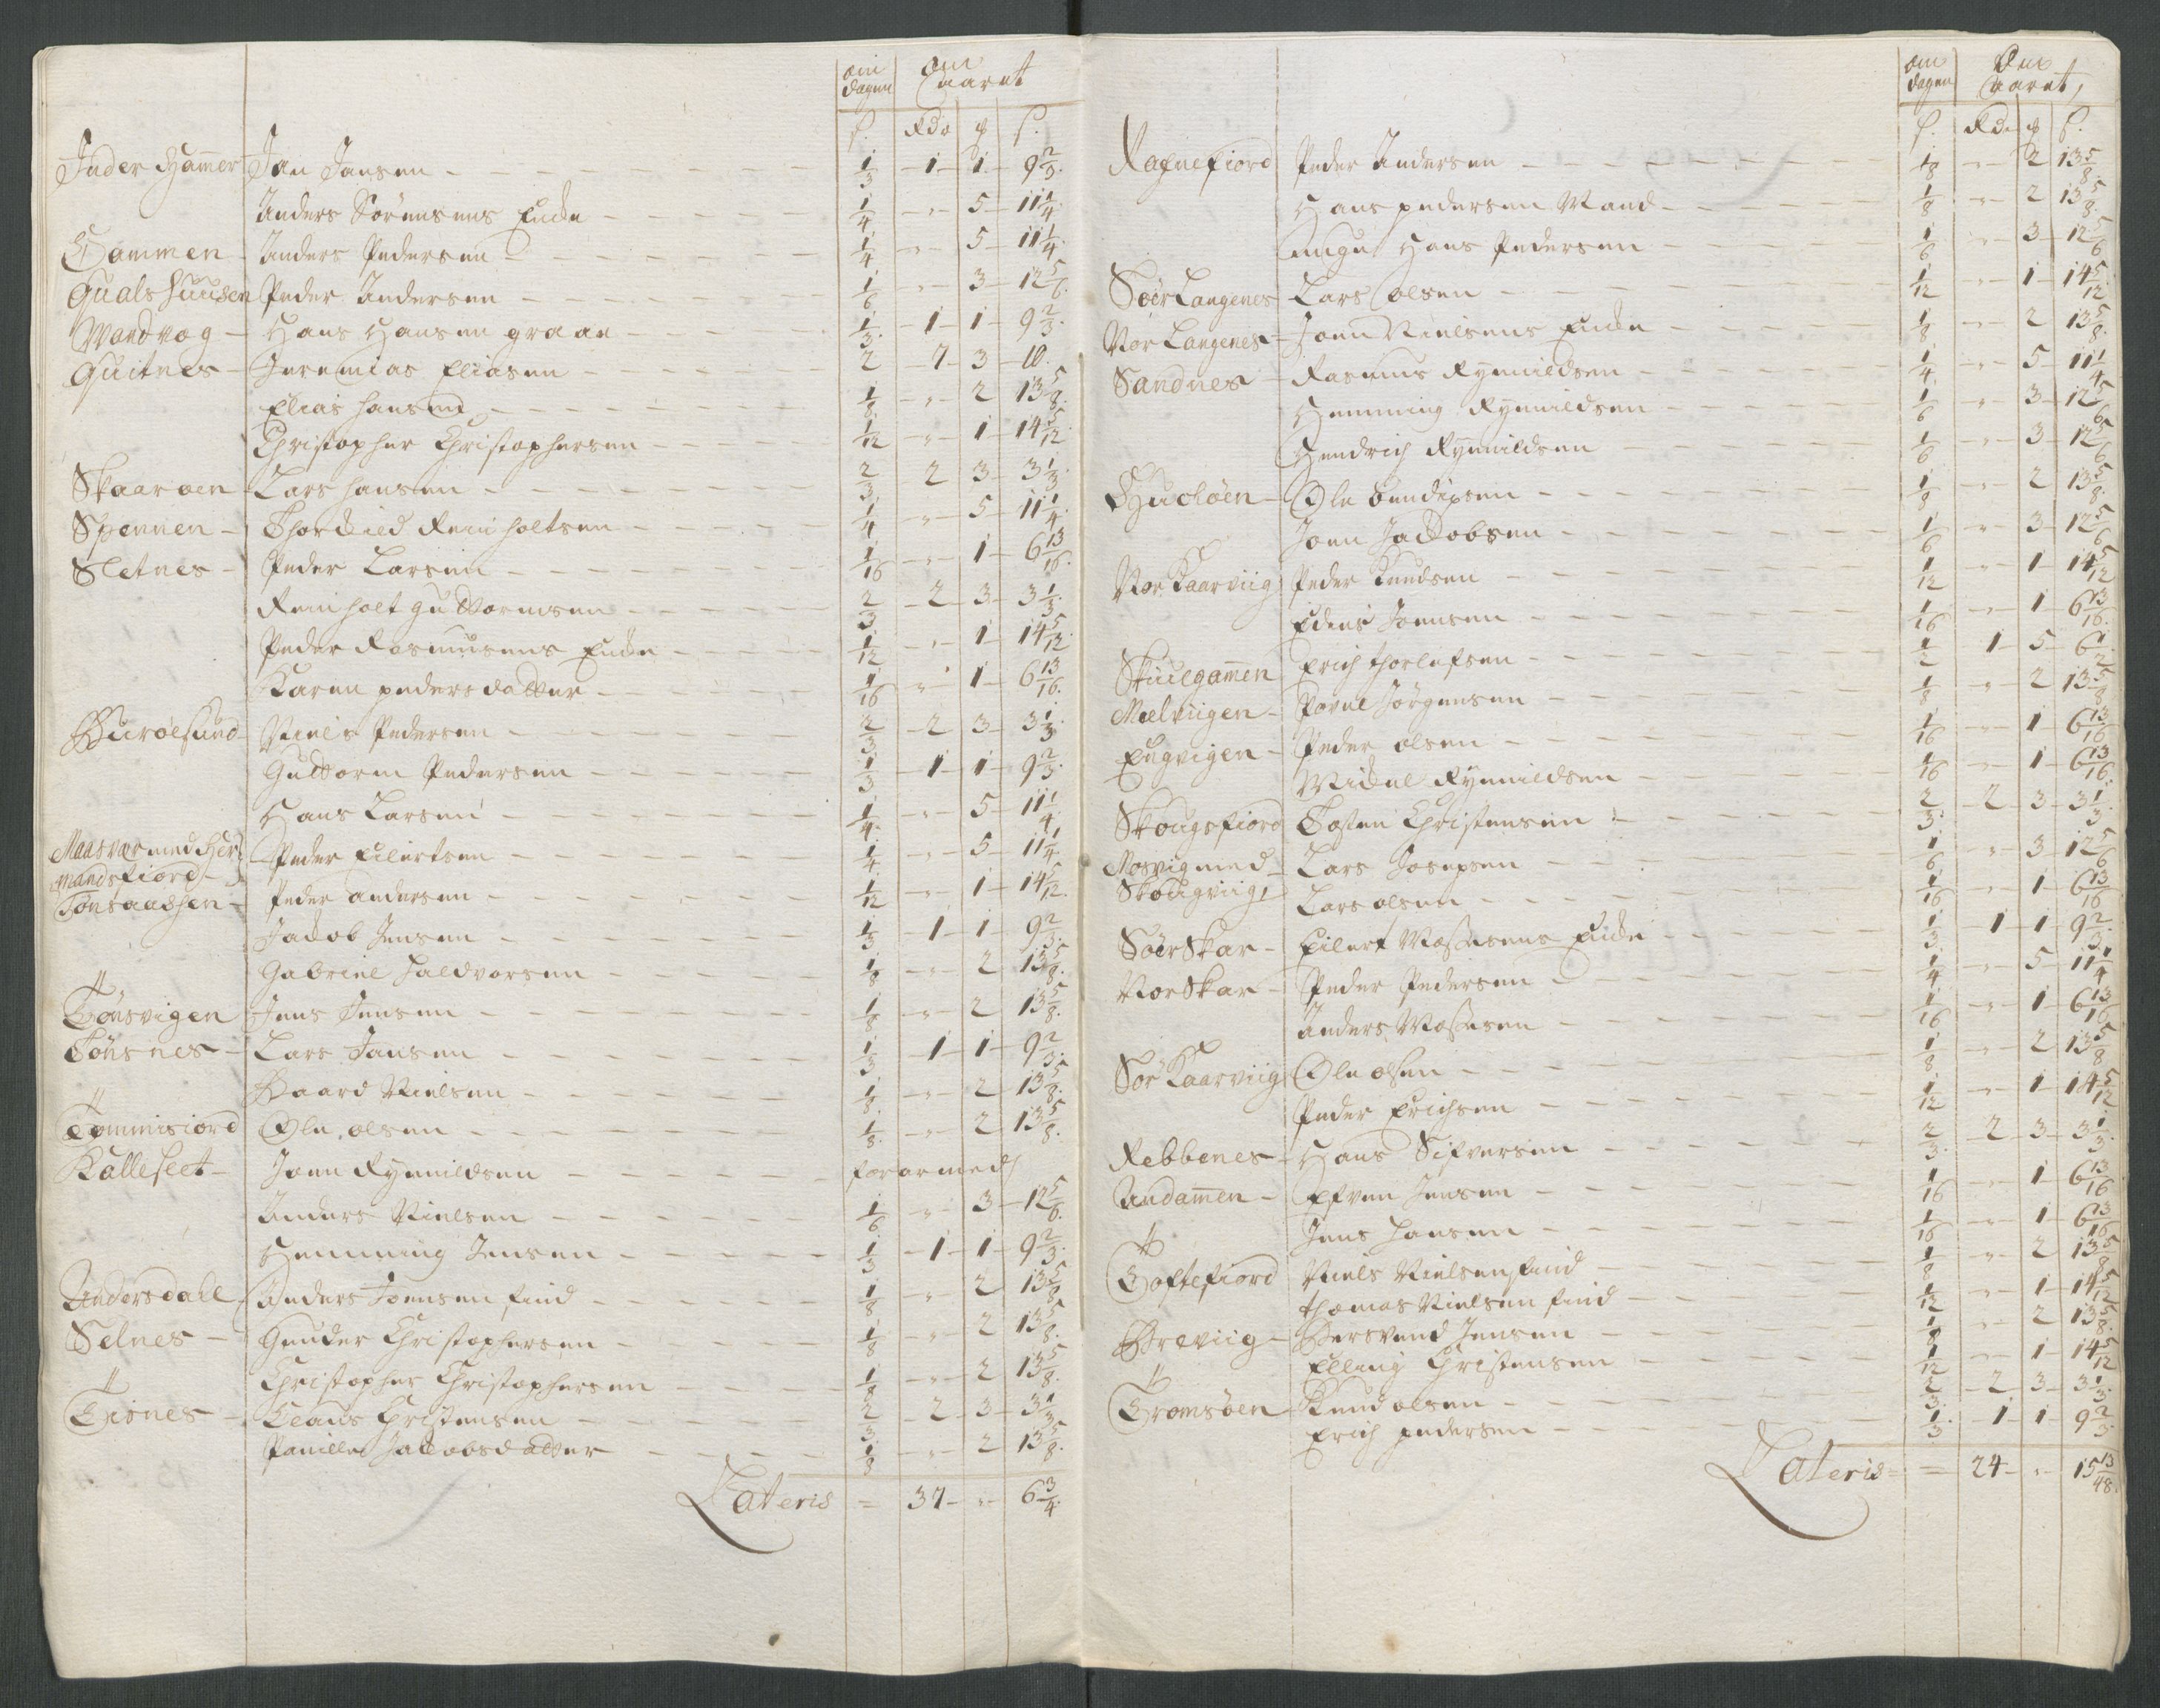 om dagen | om aaret
ß. | Rdr | ȣ | ß.
Inder Hammer | Jan Jansen | 1/3 | 1 | 1 | 9 2/3
Anders Sörensens Encke | 1/4 | " | 5 | 11 1/4
Hammen | Anders Pedersen | 1/4 | " | 5 | 11 1/4
Qualshuusen | Peder Andersen | 1/6 | " | 3 | 12 5/6
Wandvog | Hans Hansen graae | 1/3 | 1 | 1 | 9 2/3
Quitnes | Jeremias Eliasen | 2 | 7 | 3 | 10
Elias hansen | 1/8 | " | 2 | 13 5/8
Christopher Christophersen | 1/12 | " | 1 | 14 5/12
Skaaroen | Lars hansen | 2/3 | 2 | 3 | 3 1/3
Spennen | Thorkild Reinholtsen | 1/4 | " | 5 | 11 1/4
Sletnes | Peder Larsen | 1/16 | " | 1 | 6 13/16
Reinholt Guttormsen | 2/3 | 2 | 3 | 3 1/3
Peder Rasmusens Encke | 1/12 | " | 1 | 14 5/12
Karen pedersdatter | 1/16 | " | 1 | 6 13/16
Buröesund | Niels Pedersen | 2/3 | 2 | 3 | 3 1/3
Guttorm Pedersen | 1/3 | 1 | 1 | 9 2/3
Hans Larsen | 1/4 | " | 5 | 11 1/4
Maasvær med Her | Peder Eilertsen | 1/4 | " | 5 | 11 1/4
mandsfiord
Tönsaasen | Peder andersen | 1/12 | " | 1 | 14 5/12
Jacob Jensen | 1/3 | 1 | 1 | 9 2/3
Gabriel haldvorsen | 1/8 | " | 2 | 13 5/8
Tönsvigen | Jens Jensen | 1/8 | " | 2 | 13 5/8
Tönsnes | Lars Jansen | 1/3 | 1 | 1 | 9 2/3
Baard Nielsen | 1/8 | " | 2 | 13 5/8
Tommisiord | Ole olsen | 1/8 | " | 2 | 13 5/8
Kallesleet | Joen Rymeldsen | forarmed
Anders Nielsen | 1/6 | " | 3 | 12 5/6
Hemming Jensen | 1/3 | 1 | 1 | 9 2/3
Andersdahl | Anders Joensen find | 1/8 | " | 2 | 13 5/8
Selnes | Gunder Christophersen | 1/8 | " | 2 | 13 5/8
Christopher Christophersen | 1/8 | " | 2 | 13 5/8
Tisnes | Claus Christensen | 2/3 | 2 | 3 | 3 1/3
Pernille Jacobsdatter | 1/8 | " | 2 | 13 5/8
Lateris = 37 | " | 6 3/4
om dagen | Om aaret,
ß. | Rdr | ȣ | ß.
Rafnefiord | Peder Andersen | 1/8 | " | 2 | 13 5/8
Hans pedersen Mand | 1/8 | " | 2 | 13 5/8
unge Hans Pedersen | 1/6 | " | 3 | 12 5/6
Söer Langenes | Lars olsen | 1/12 | " | 1 | 14 5/12
Nor Langenes | Joen Nielsens Encke | 1/8 | " | 2 | 13 5/8
Sandnes | Rasmus Rymeldsen | 1/4 | " | 5 | 11 1/4
Hemming Rymeldsen | 1/6 | " | 3 | 12 5/6
Hendrich Rymeldsen | 1/6 | " | 3 | 12 5/6
Ole Bendixsen | 1/8 | " | 2 | 13 5/8
Joen Jacobsen | 1/6 | " | 3 | 12 5/6
Nor Kaarviig | Peder Knudsen | 1/12 | " | 1 | 14 5/12
Joensen | 1/16 | " | 1 | 6 13/16
Skuulgamen | Erich thorlefsen | 1/2 | 1 | 5 | 6 1/2
Mielviigen | Povel Jörgensen | 1/8 | " | 2 | 13 5/8
Engvigen | Peder olsen | 1/16 | " | 1 | 6 13/16
Mickel Rymeldsen | 1/16 | " | 1 | 6 13/16
Skougsfiord | Tosten Christensen | 2/3 | 2 | 3 | 3 1/3
Mosvig med | Lars Josepsen | 1/6 | " | 3 | 12 5/6
Skougviig, | Lars olsen | 1/16 | " | 1 | 6 13/16
Söer Skar | Eilert Moßesens Encke | 1/3 | 1 | 1 | 9 2/3
Nor Skar | Peder Pedersen | 1/4 | " | 5 | 11 1/4
Anders Moßesen | 1/16 | " | 1 | 6 13/16
Sör Kaarviig | Ole olsen | 1/8 | " | 2 | 13 5/8
Peder Erichsen | 1/12 | " | 1 | 14 5/12
Rebbenes | Hans Sifversen | 2/3 | 2 | 3 | 3 1/3
Andamen | Efven Jensen | 1/16 | " | 1 | 6 13/16
Jens hansen | 1/16 | " | 1 | 6 13/16
Toftefiord | Niels Nielsen find | 1/8 | " | 2 | 13 5/8
thomas Nielsen find | 1/12 | " | 1 | 14 5/12
Breviig | Bersvend Jensen | 1/8 | " | 2 | 13 5/8
Elling Christensen | 1/12 | " | 1 | 14 5/12
Tromsöen | Knud olsen | 2/3 | 2 | 3 | 3 1/3
Erich pedersen | 1/3 | 1 | 1 | 9 2/3
Lateris = 24 | " | 15 13/48